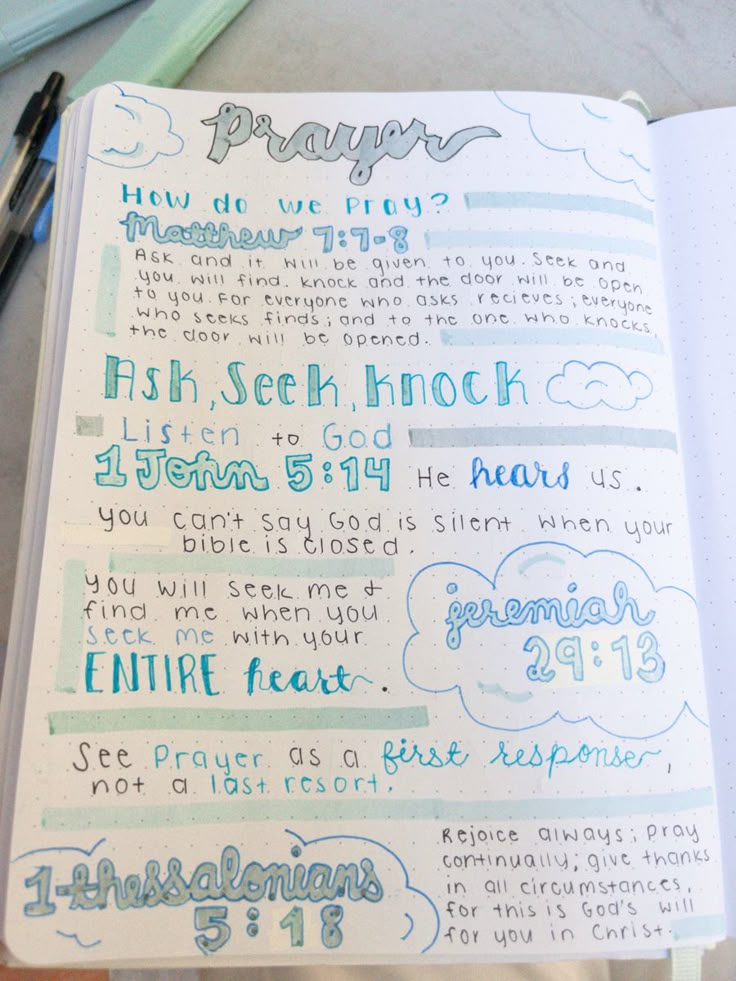 Prayer
How do we pray?
Matthew 7:7-8
Ask and it will be given to you. Seek and
you will find. Knock and the door will be open
to you. For everyone who asks recieves; everyone
who seeks finds; and to the one who knocks,
the door will be opened.
Ask, Seek, Knock
Listen to God
1 John 5:14 He hears us.
you can't say God is silent when your
bible is closed.
you will seek me &
find me when you
seek me with your
ENTIRE heart.
jeremiah
29:13
See Prayer as a first response,
not a last resort.
1 thessalonians
5:18
Rejoice always; pray
continually; give thanks
in all circumstances,
for this is God's will
for you in Christ.